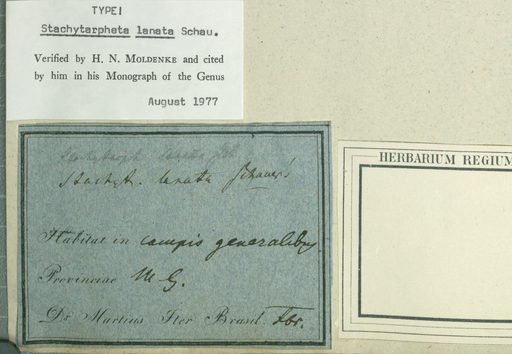 TYPE!
Stachytarpheta lanata Schau.
Verified by H. N. MOLDENKE and cited
by him in his Monograph of the Genus
August 1977
Stachytarph lanata Sch
Stachyt. lanata Schauer
HERBARIUM REGIUM
Habitat in campis generalibus
Provinciae M G.
Dr Martius Iter Brasil. Febr.